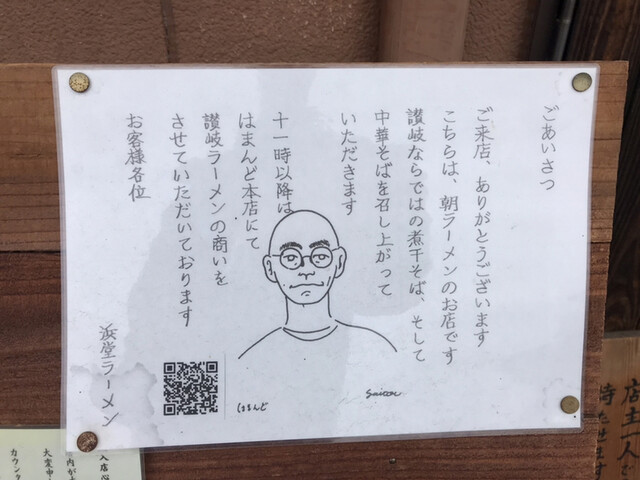 ごあいさつ
ご来店、ありがとうございます
こちらは、朝ラーメンのお店です
讃岐ならではの煮干そば、そして
中華そばを召し上がって
いただきます
十一時以降は
はまんど本店にて
讃岐ラーメンの商いを
させていただいております
お客様各位
浜堂ラーメン
はまんど
店主一人で